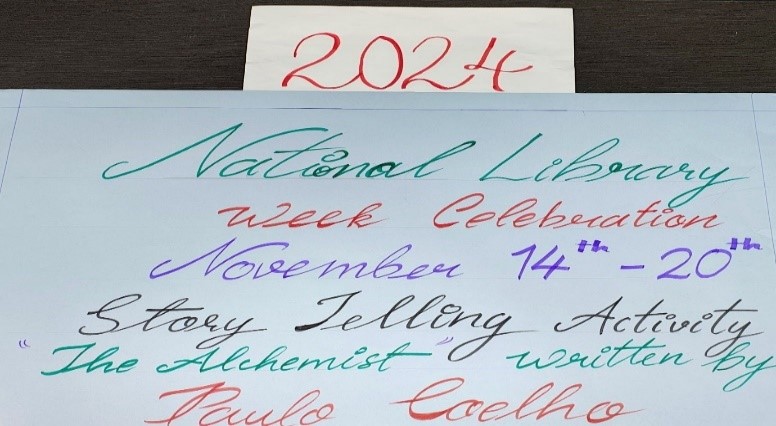 2024
National Library
Week Celebration
November 14th - 20th
Story Telling Activity
"The Alchemist" written by
Paulo Coelho